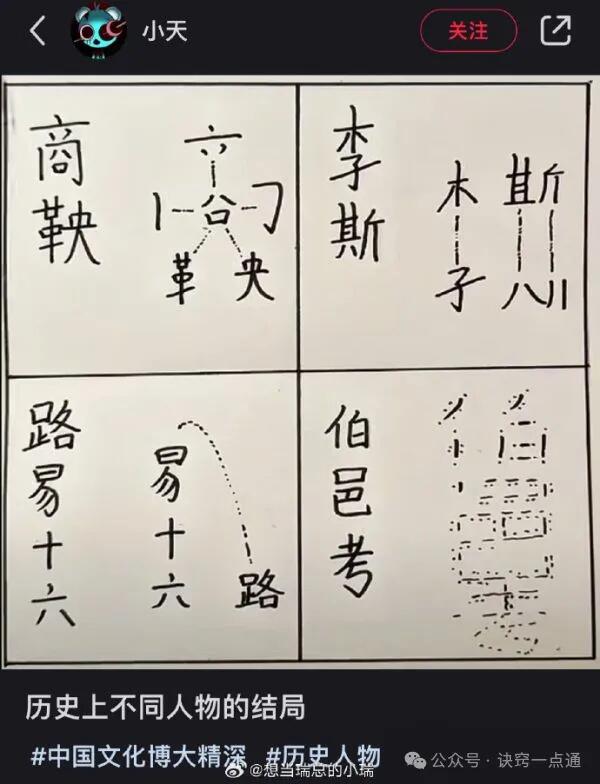 小天
关注
商鞅
亠丷
丨 㕣 刁
革 央
李斯
木
子
斯
八 川
路易十六
易十六
路
伯邑考
历史上不同人物的结局
#中国文化博大精深 #历史人物
@想当瑞总的小瑞
公众号·诀窍一点通